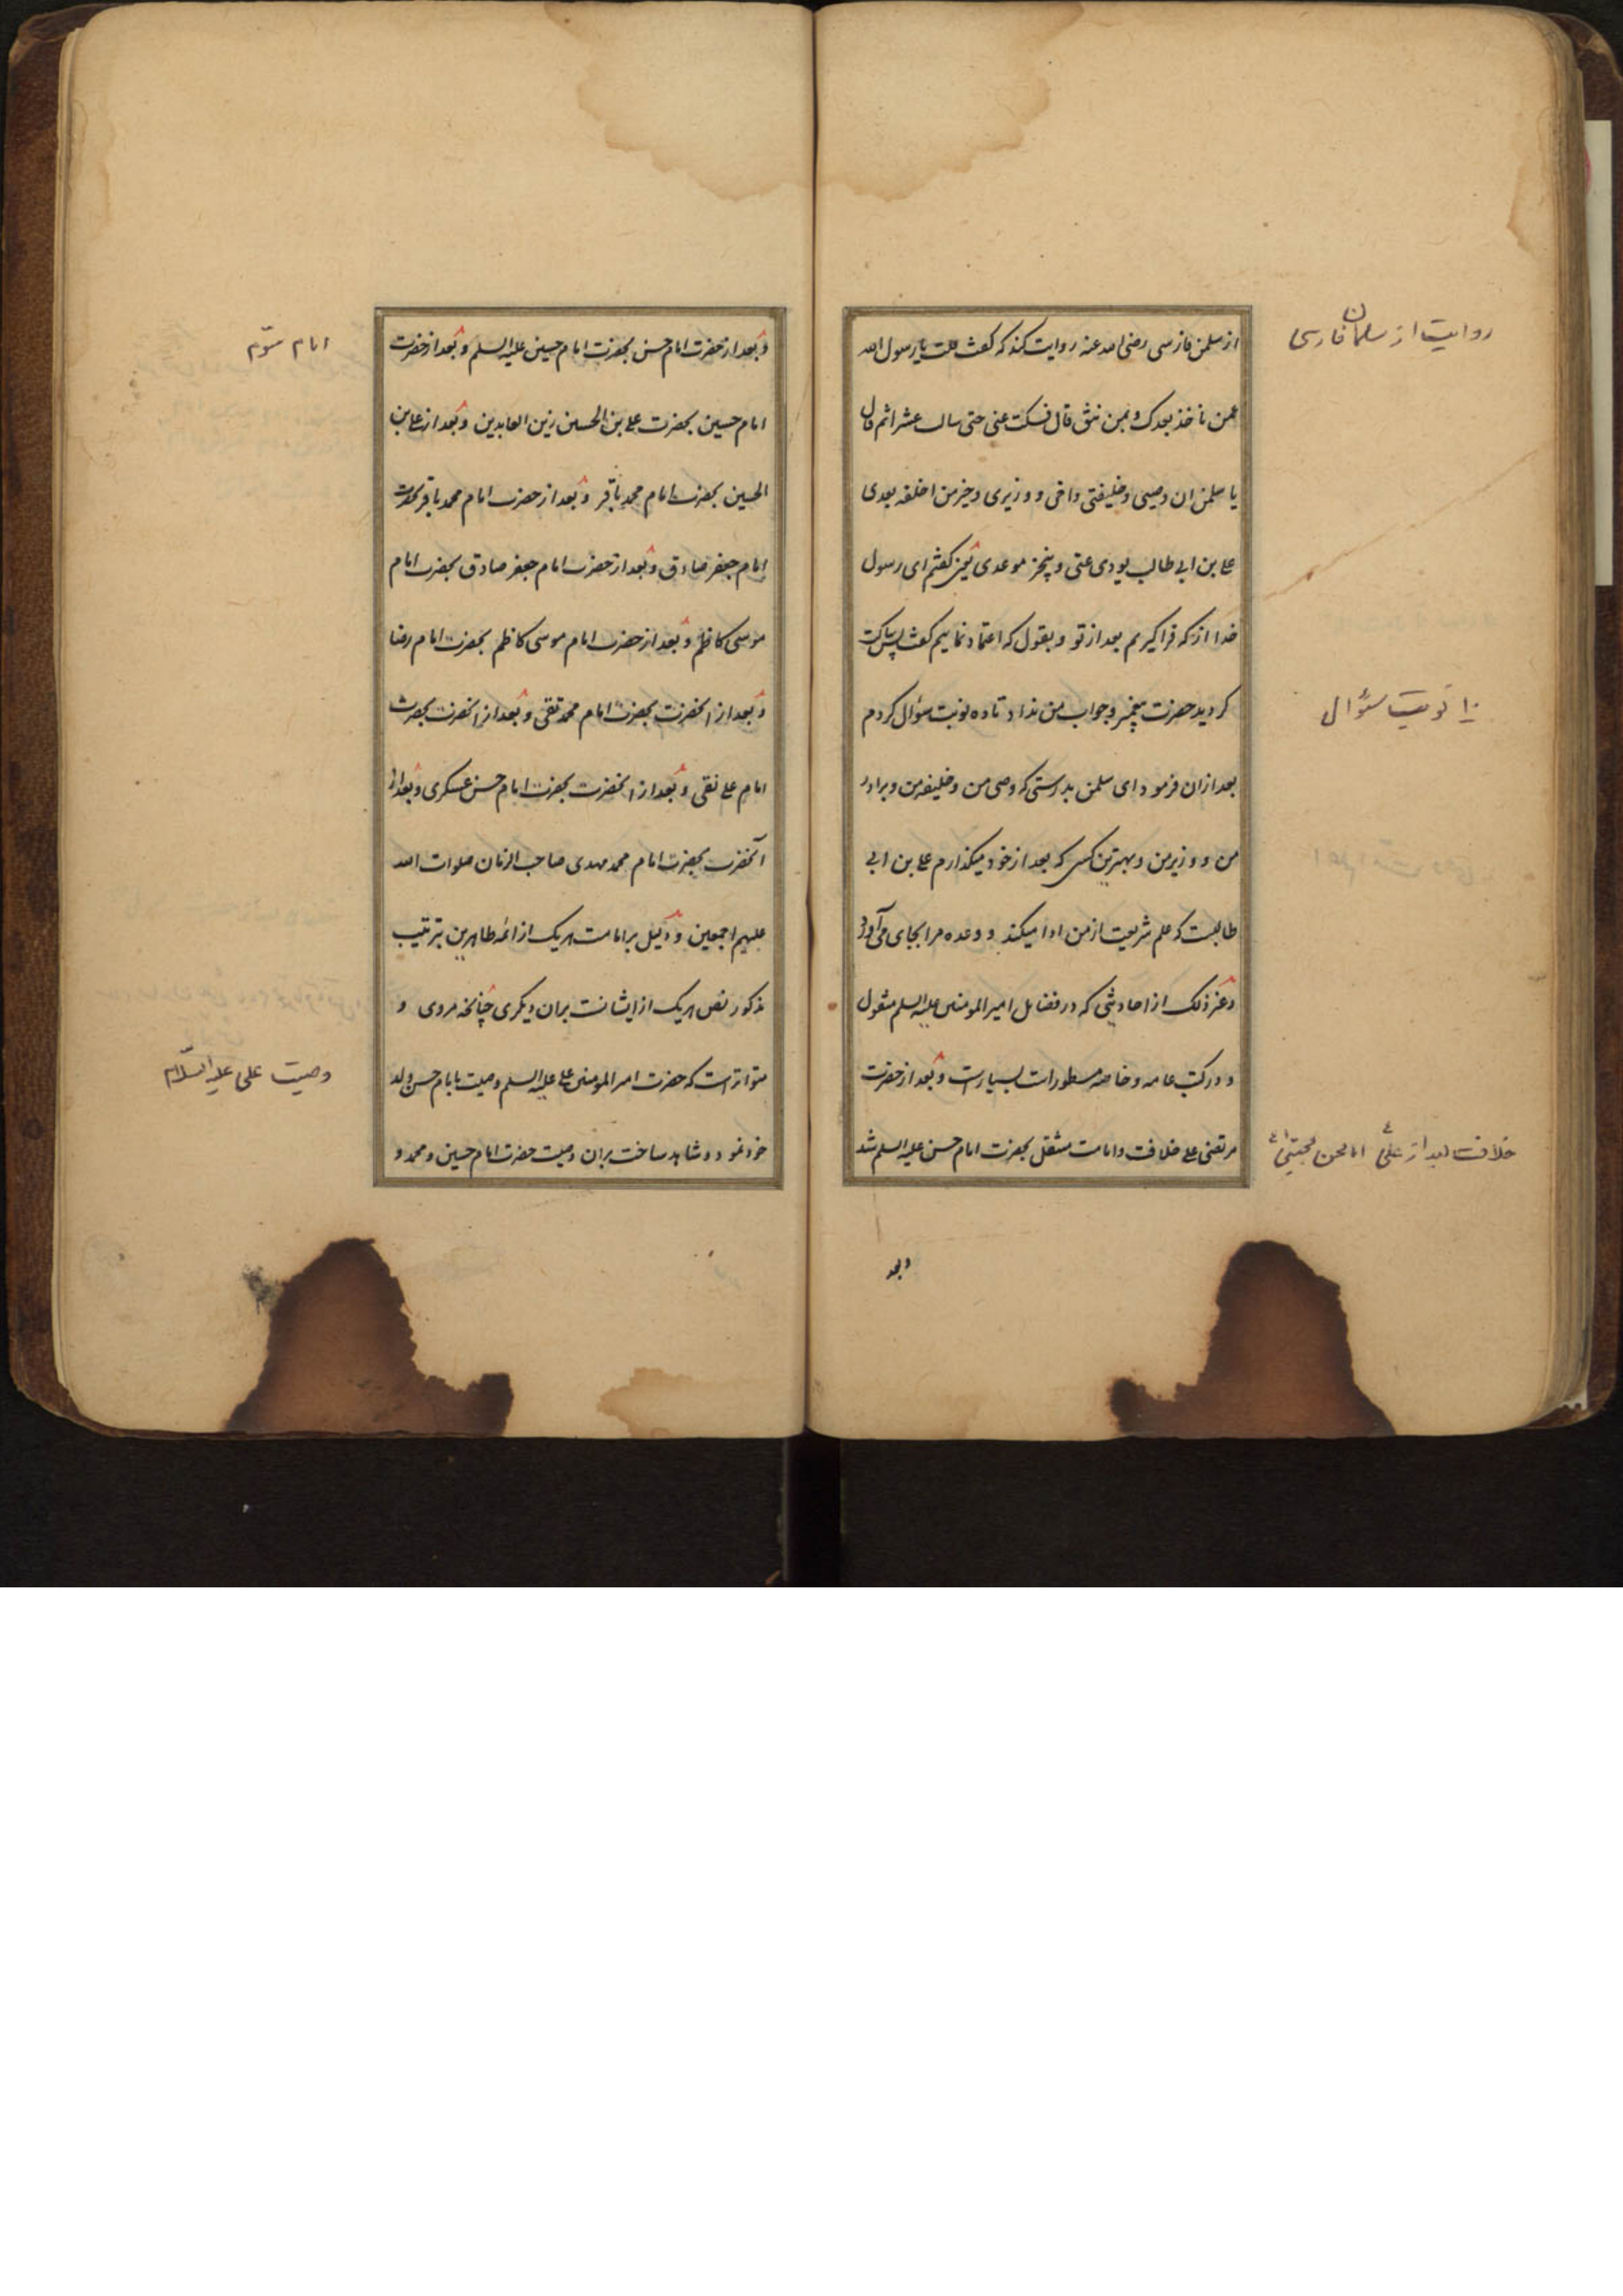 روایت از سلمان فارسی
از سلمن فارسی رضی الله عنه روایت کند که گفت قلت یا رسول الله
عمن ناخذ بعدک و بمن نثق قال فسکت عنی حتی سالت عشرا ثم قال
یا سلمن ان وصیی و خلیفتی و اخی و وزیری و خیر من اخلفه بعدی
علی بن ابی طالب یودی عنی و ینجز موعدی یعنی گفتم ای رسول
خدا از که فراگیریم بعد از تو و بقول که اعتماد نماییم گفت پس ساکت
گردید حضرت پیغمبر و جواب من نداد تا ده نوبت سؤال کردم
۱۰ نوبت سئوال
بعد ازان فرمود ای سلمن بدرستی که وصی من و خلیفه من و برادر
من و وزیر من و بهترین کسی که بعد از خود میگذارم علی بن ابی
طالبست که علم شریعت از من ادا میکند و وعده مرا بجای می آورد
و غیر ذلک از احادیثی که در فضایل امیر المومنین علیه السلم منقول
و در کتب عامه و خاصه مسطورات بسیارست و بعد از حضرت
مرتضی علی خلافت و امامت منتقل بحضرت امام حسن علیه السلم شد
خلافت بعد از علی ع امام حسن مجتبی ع
وبعد
امام سوّم
و بعد از حضرت امام حسن بحضرت امام حسین علیه السلم و بعد از حضرت
امام حسین بحضرت علی بن الحسین زین العابدین و بعد از علی بن
الحسین بحضرت امام محمد باقر و بعد از حضرت امام محمد باقر بحضرت
امام جعفر صادق و بعد از حضرت امام جعفر صادق بحضرت امام
موسی کاظم و بعد از حضرت امام موسی کاظم بحضرت امام رضا
و بعد از انحضرت بحضرت امام محمد تقی و بعد از انحضرت بحضرت
امام علی نقی و بعد از انحضرت بحضرت امام حسن عسکری و بعد از
آنحضرت بحضرت امام محمد مهدی صاحب الزمان صلوات الله
علیهم اجمعین و دلیل بر امامت هریک از ائمه طاهرین بترتیب
مذکور نص هریک از ایشانست بران دیگری چنانچه مروی و
متواترست که حضرت امیر المومنین علی علیه السلم وصیت بامام حسن ولد
وصیت علی علیه السّلام
خود نمود و شاهد ساخت بران وصیت حضرت امام حسین و محمد و